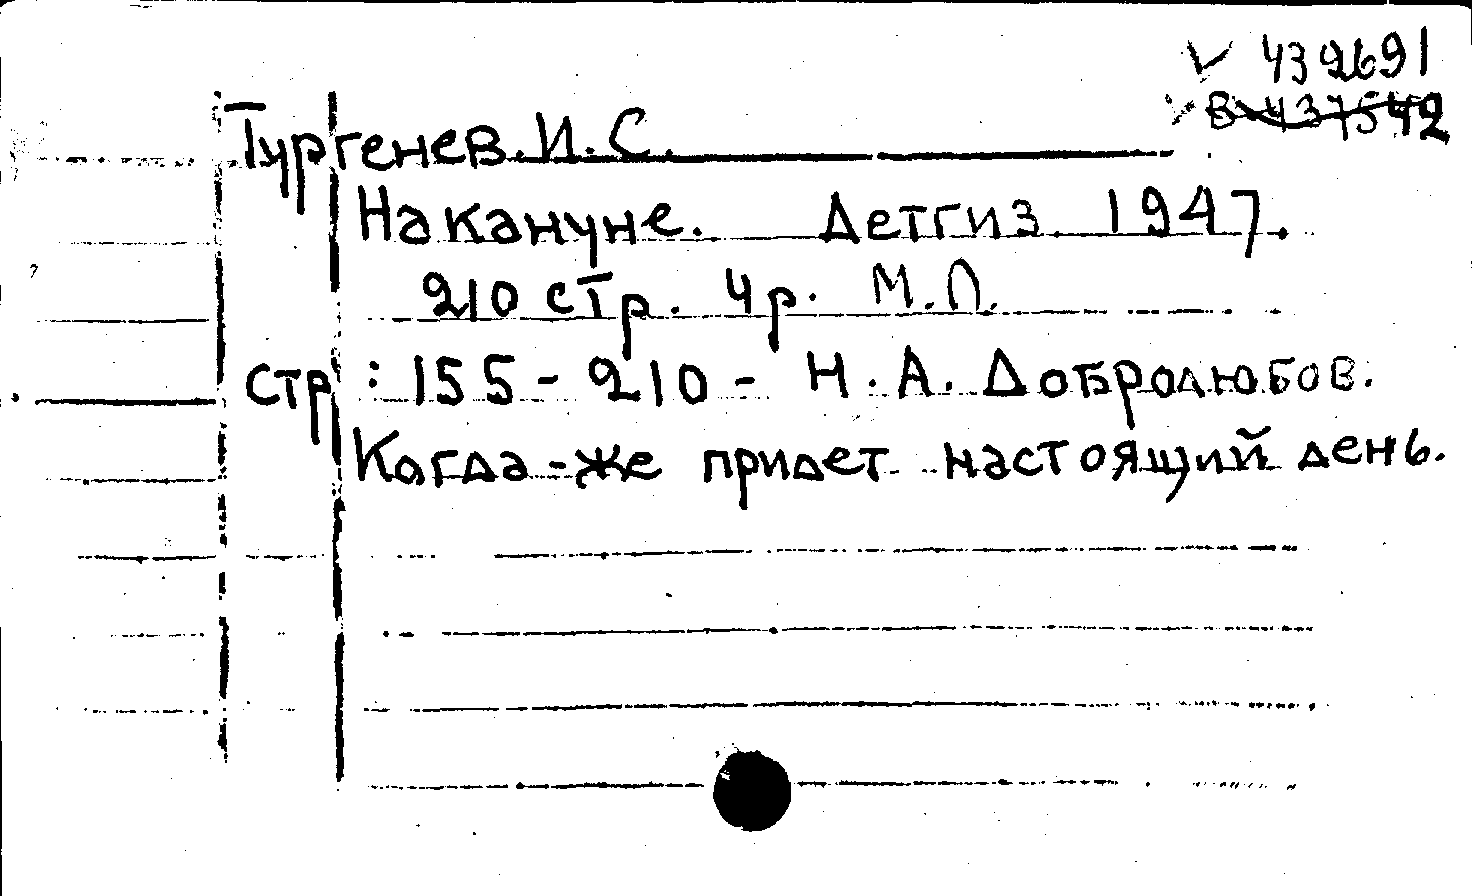 ✓ 439691
✓ В 437542
Тургенев. И. С.
Накануне. Детгиз 1947.
210 стр. 4р. М.Л.
Стр: 155 - 210 - Н. А. Добролюбов.
Когда-же придет настоящий день.